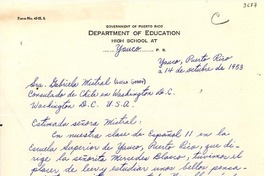 Form No. 41-H. S.
C
3677
GOVERNMENT OF PUERTO RICO
DEPARTMENT OF EDUCATION
HIGH SCHOOL AT
Yauco P. R.
Yauco, Puerto Rico
a 14 de octubre de 1953
Sra. Gabriela Mistral
Consulado de Chile en Washington D.C.
Washington D.C. U.S.A
Estimada señora Mistral:
En nuestra clase de Español 11 en la
Escuela Superior de Yauco, Puerto Rico, que di-
rige la señorita Mercedes Blanco, tuvimos el
placer de leer y estudiar unos bellos pensa-